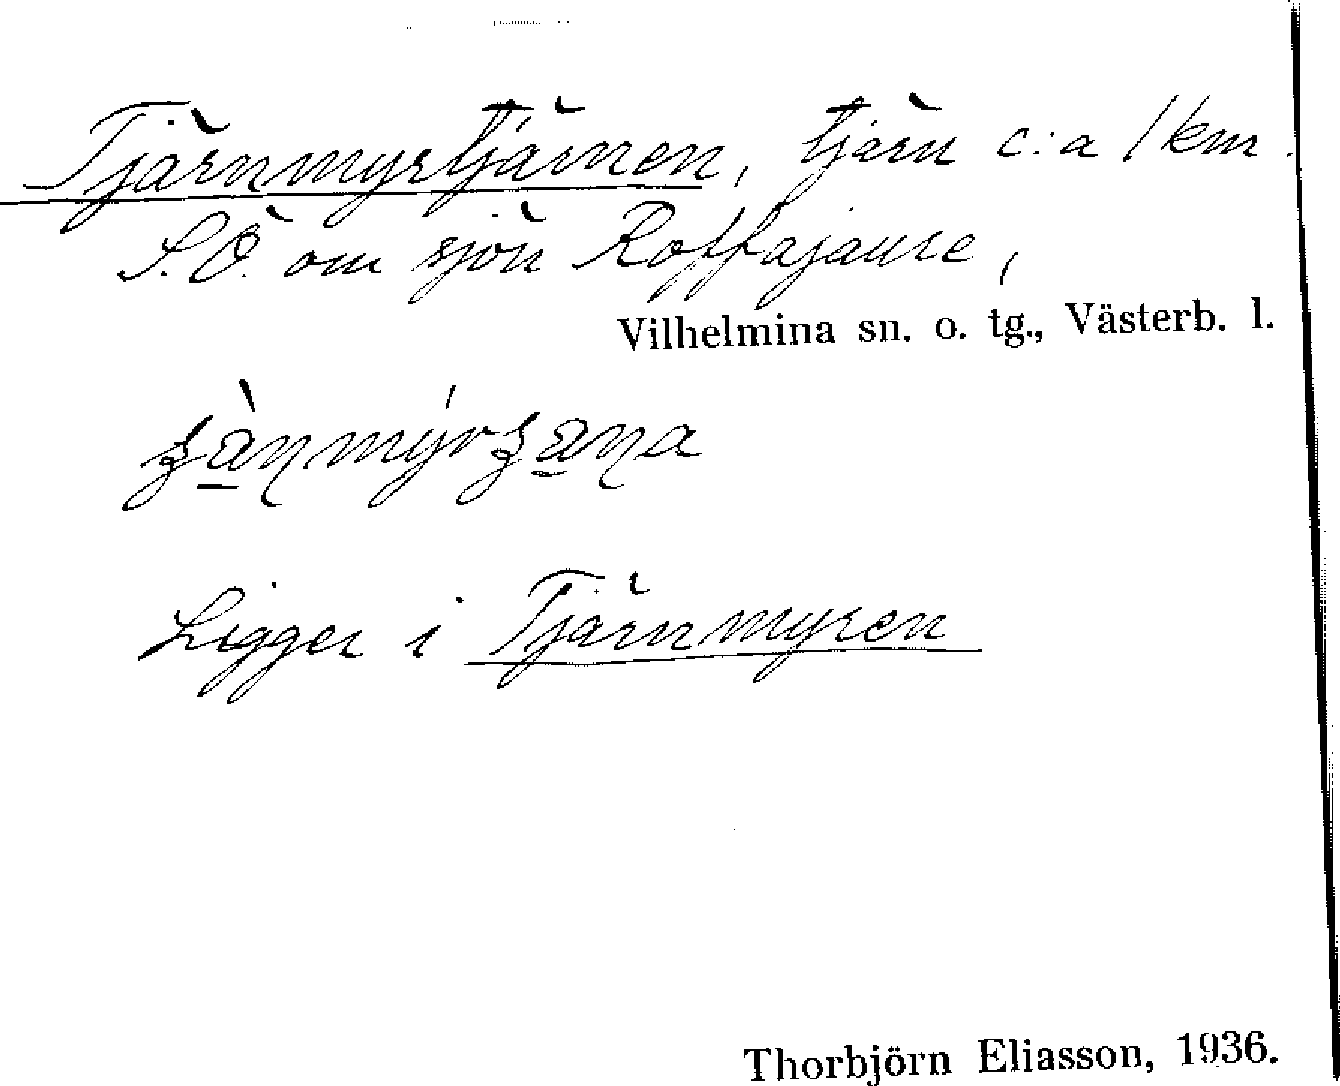 Tjärnmyrtjärnen, tjärn c:a 1 km.
S.Ö. om sjön Roffajaure,
Vilhelmina sn. o. tg., Västerb. l.
Ligger i Tjärnmyren
Thorbjörn Eliasson, 1936.